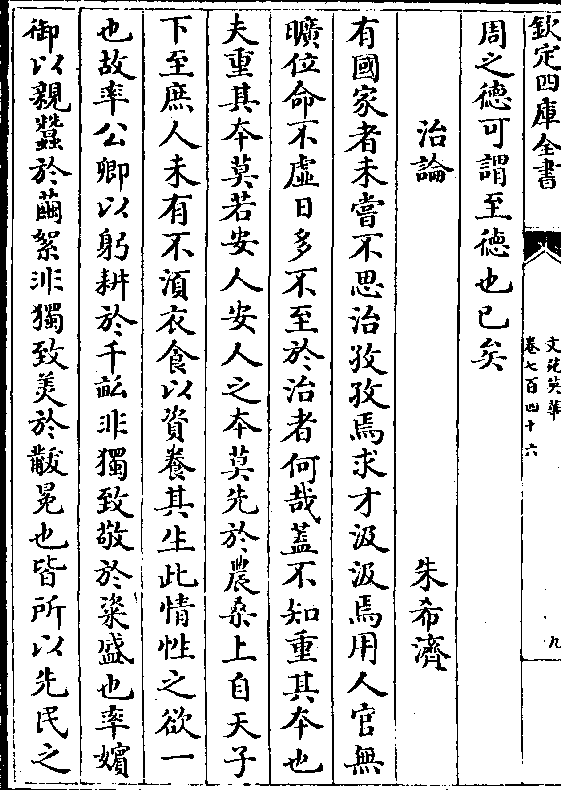 欽定四庫全書
文苑英華
卷七百四十六
九
周之德可謂至德也已矣
治論
朱希濟
有國家者未嘗不思治孜孜焉求才汲汲焉用人官無
曠位命不虛日多不至於治者何哉蓋不知重其本也
夫重其本莫若安人安人之本莫先於農桑上自天子
下至庶人未有不湏衣食以資養其生此情性之欲一
也故率公卿以躬耕於千畝非獨致敬於粢盛也率嬪
御以親蠶於繭絮非獨致美於黻冕也皆所以先民之